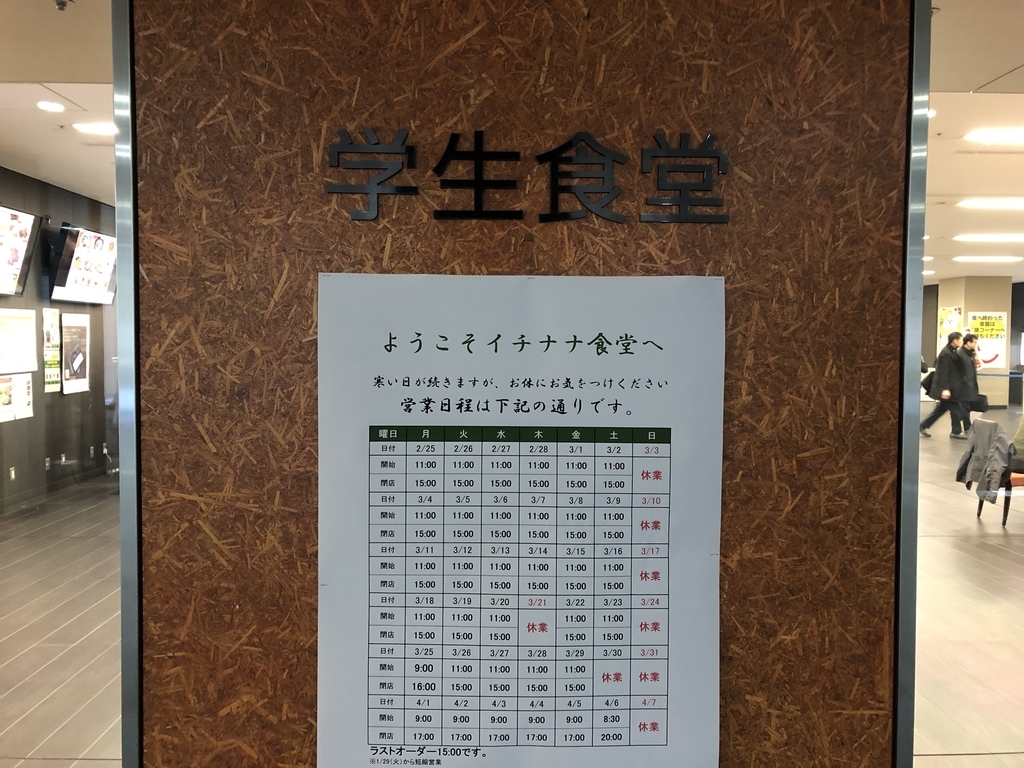 学生食堂
ようこそイチナナ食堂へ
寒い日が続きますが、お体にお気をつけください
営業日程は下記の通りです。
曜日 月 火 水 木 金 土 日
日付 2/25 2/26 2/27 2/28 3/1 3/2 3/3
開始 11:00 11:00 11:00 11:00 11:00 11:00 休業
閉店 15:00 15:00 15:00 15:00 15:00 15:00
日付 3/4 3/5 3/6 3/7 3/8 3/9 3/10
開始 11:00 11:00 11:00 11:00 11:00 11:00 休業
閉店 15:00 15:00 15:00 15:00 15:00 15:00
日付 3/11 3/12 3/13 3/14 3/15 3/16 3/17
開始 11:00 11:00 11:00 11:00 11:00 11:00 休業
閉店 15:00 15:00 15:00 15:00 15:00 15:00
日付 3/18 3/19 3/20 3/21 3/22 3/23 3/24
開始 11:00 11:00 11:00 休業 11:00 11:00 休業
閉店 15:00 15:00 15:00 15:00 15:00
日付 3/25 3/26 3/27 3/28 3/29 3/30 3/31
開始 9:00 11:00 11:00 11:00 11:00 休業 休業
閉店 16:00 15:00 15:00 15:00 15:00
日付 4/1 4/2 4/3 4/4 4/5 4/6 4/7
開始 9:00 9:00 9:00 9:00 9:00 8:30 休業
閉店 17:00 17:00 17:00 17:00 17:00 20:00
ラストオーダー15:00です。
※1/29(火)から短縮営業
食べ終わった
食器は